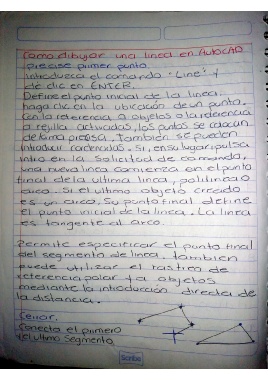 Como dibujar una linea en AutoCAD
Precise primer punto
Introduzca el comando "Line" y
de clic en ENTER.
Define el punto inicial de la linea.
haga clic en la ubicación de un punto.
Con la referencia a objetos o la referencia
a rejilla activadas, los puntos se colocan
de forma precisa. También se pueden
introducir cordenadas. Si, en su lugar pulsa
intro en la solicitud de comando,
una nueva linea comienza en el punto
final de la ultima linea, polilinea o
arco. Si el ultimo objeto creado
es un arco, su punto final define
el punto inicial de la linea. La linea
es tangente al arco.
Permite especificar el punto final
del segmento de linea. tambien
puede utilizar el rastreo de
referencia polar y a objetos
mediante la introducción directa de
la distancia.
Cerrar.
Conecta el primero
y el ultimo Segmento.
Scribe